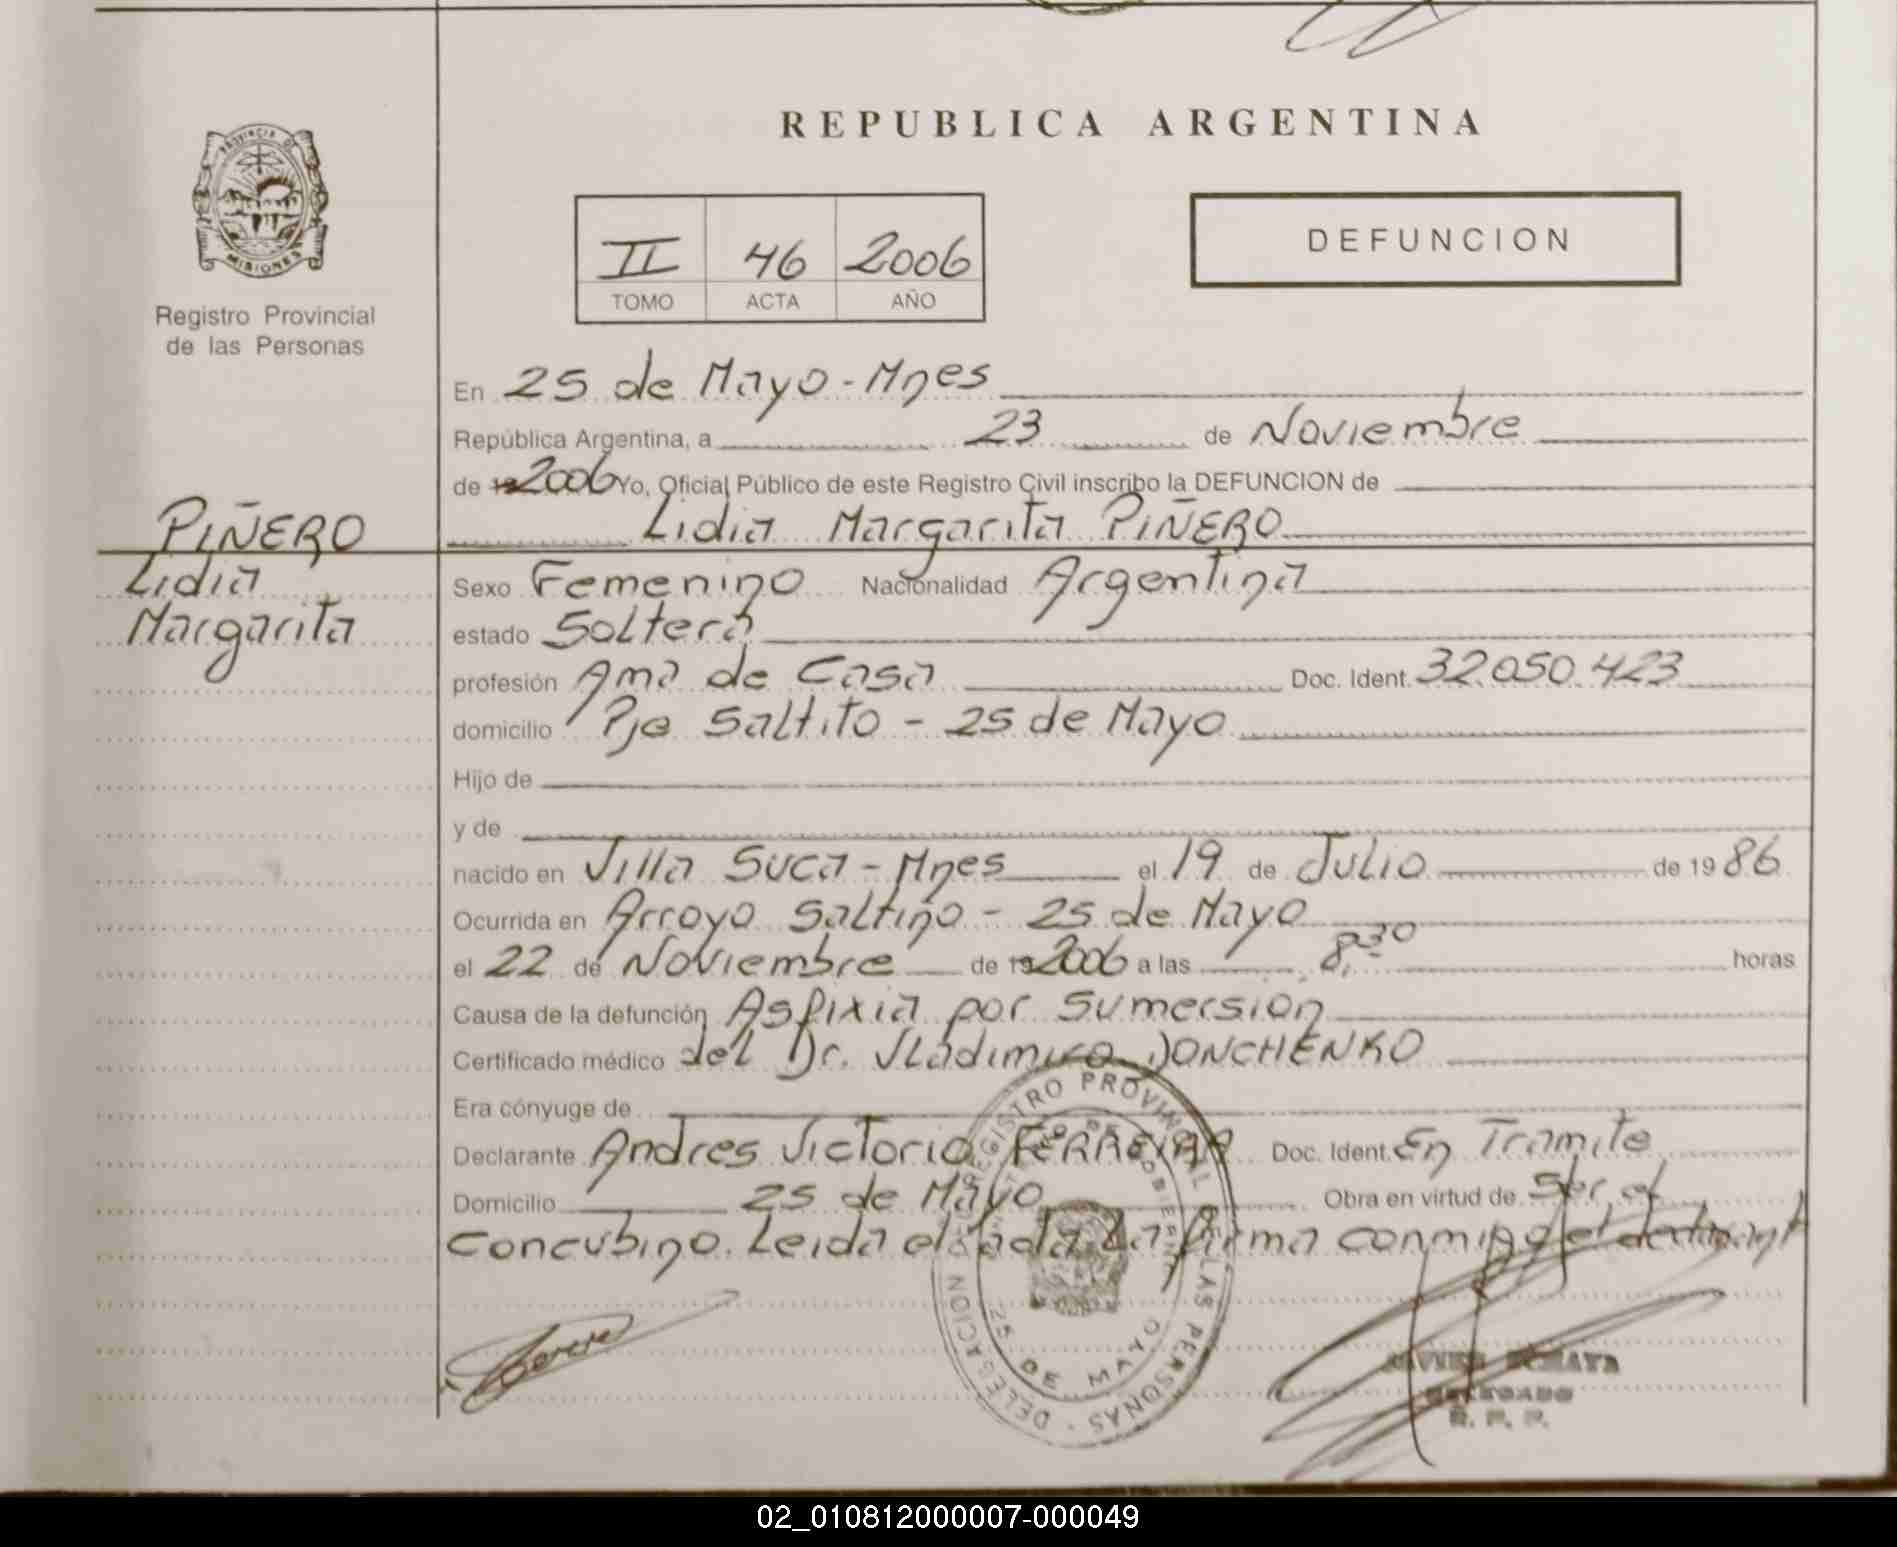 REPUBLICA ARGENTINA
PROVINCIA DE
MISIONES
Registro Provincial
de las Personas
II 46 2006
TOMO ACTA AÑO
DEFUNCION
En 25 de Mayo - Mnes
República Argentina, a 23 de Noviembre
de 192006 Yo, Oficial Público de este Registro Civil inscribo la DEFUNCION de
PIÑERO
Lidia
Margarita
Lidia Margarita PIÑERO
Sexo Femenino Nacionalidad Argentina
estado Soltera
profesión Ama de Casa Doc. Ident. 32.050.423
domicilio Pje Saltito - 25 de Mayo
Hijo de
y de
nacido en Villa Suca - Mnes el 19 de Julio de 1986
Ocurrida en Arroyo Saltiño - 25 de Mayo
el 22 de Noviembre de 192006 a las 8,30 horas
Causa de la defunción Asfixia por Sumersion
Certificado médico del Dr. Vladimiro DONCHENKO
Era cónyuge de
Declarante Andres Victorio FERREYRA Doc. Ident. En Tramite
Domicilio 25 de Mayo Obra en virtud de Ser el
Concubino. Leida el acta la firma conmigo el declarant
REGISTRO PROVINCIAL DE LAS PERSONAS - DELEGACION
25 DE MAYO
DELEGADO
R. P. P.
02_010812000007-000049